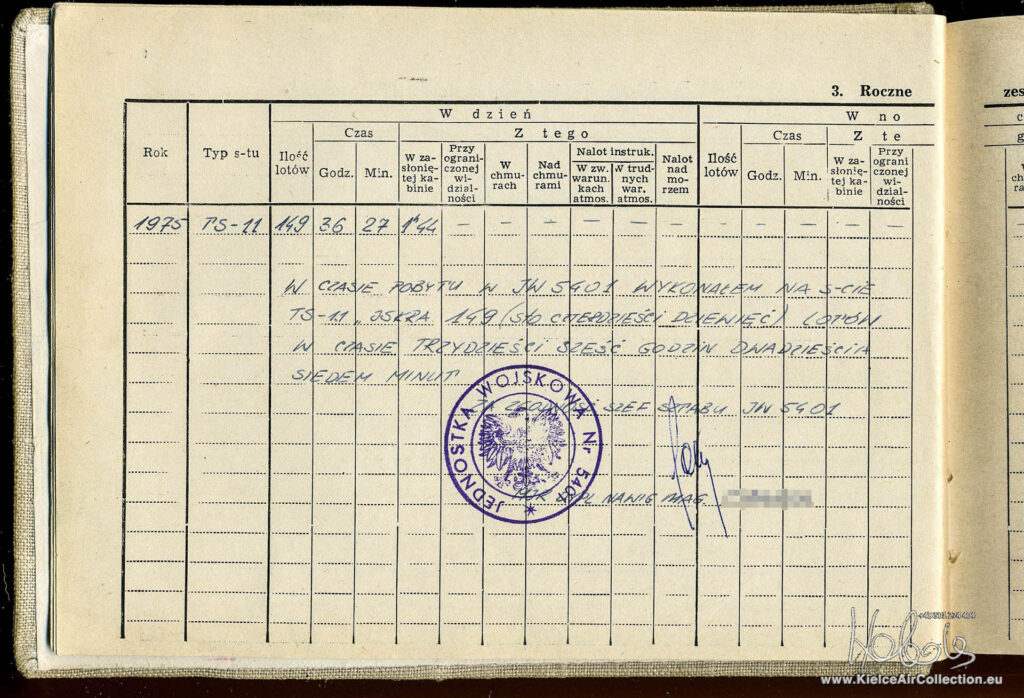 3. Roczne
zes
Rok
Typ s-tu
W dzień
Ilość lotów
Czas
Godz.
Min.
Z tego
W zasłoniętej kabinie
Przy ograniczonej widzialności
W chmurach
Nad chmurami
Nalot instruk.
W zw. warunkach atmos.
W trudnych war. atmos.
Nalot nad morzem
W no
Ilość lotów
Czas
Godz.
Min.
Z te
W zasłoniętej kabinie
Przy ograniczonej widzialności
1975 TS-11 149 36 27 1h44 — — — — — — — — — — —
W CZASIE POBYTU W JW 5401 WYKONAŁEM NA S-CIE
TS-11 „ISKRA 149 (STO CZTERDZIEŚCI DZIEWIĘĆ) LOTÓW
W CZASIE TRZYDZIEŚCI SZEŚĆ GODZIN DWADZIEŚCIA
SIEDEM MINUT
ZA ZGODNOŚĆ SZEF SZTABU JW 5401
JEDNOSTKA WOJSKOWA Nr 5401
DYPL NAWIG MAG.
www.KielceAirCollection.eu